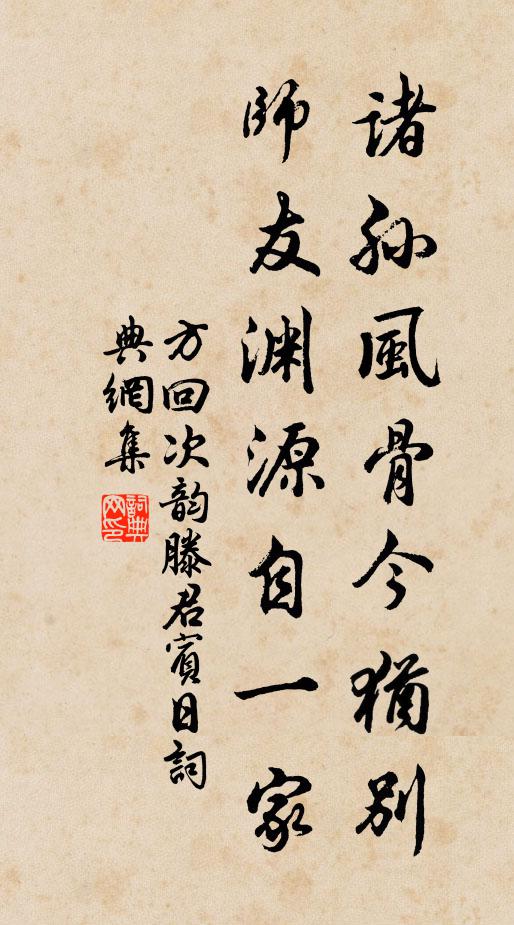 諸孫風骨今猶別
師友淵源自一家
方回次韵滕君賓日詞
典網集
詞典網印